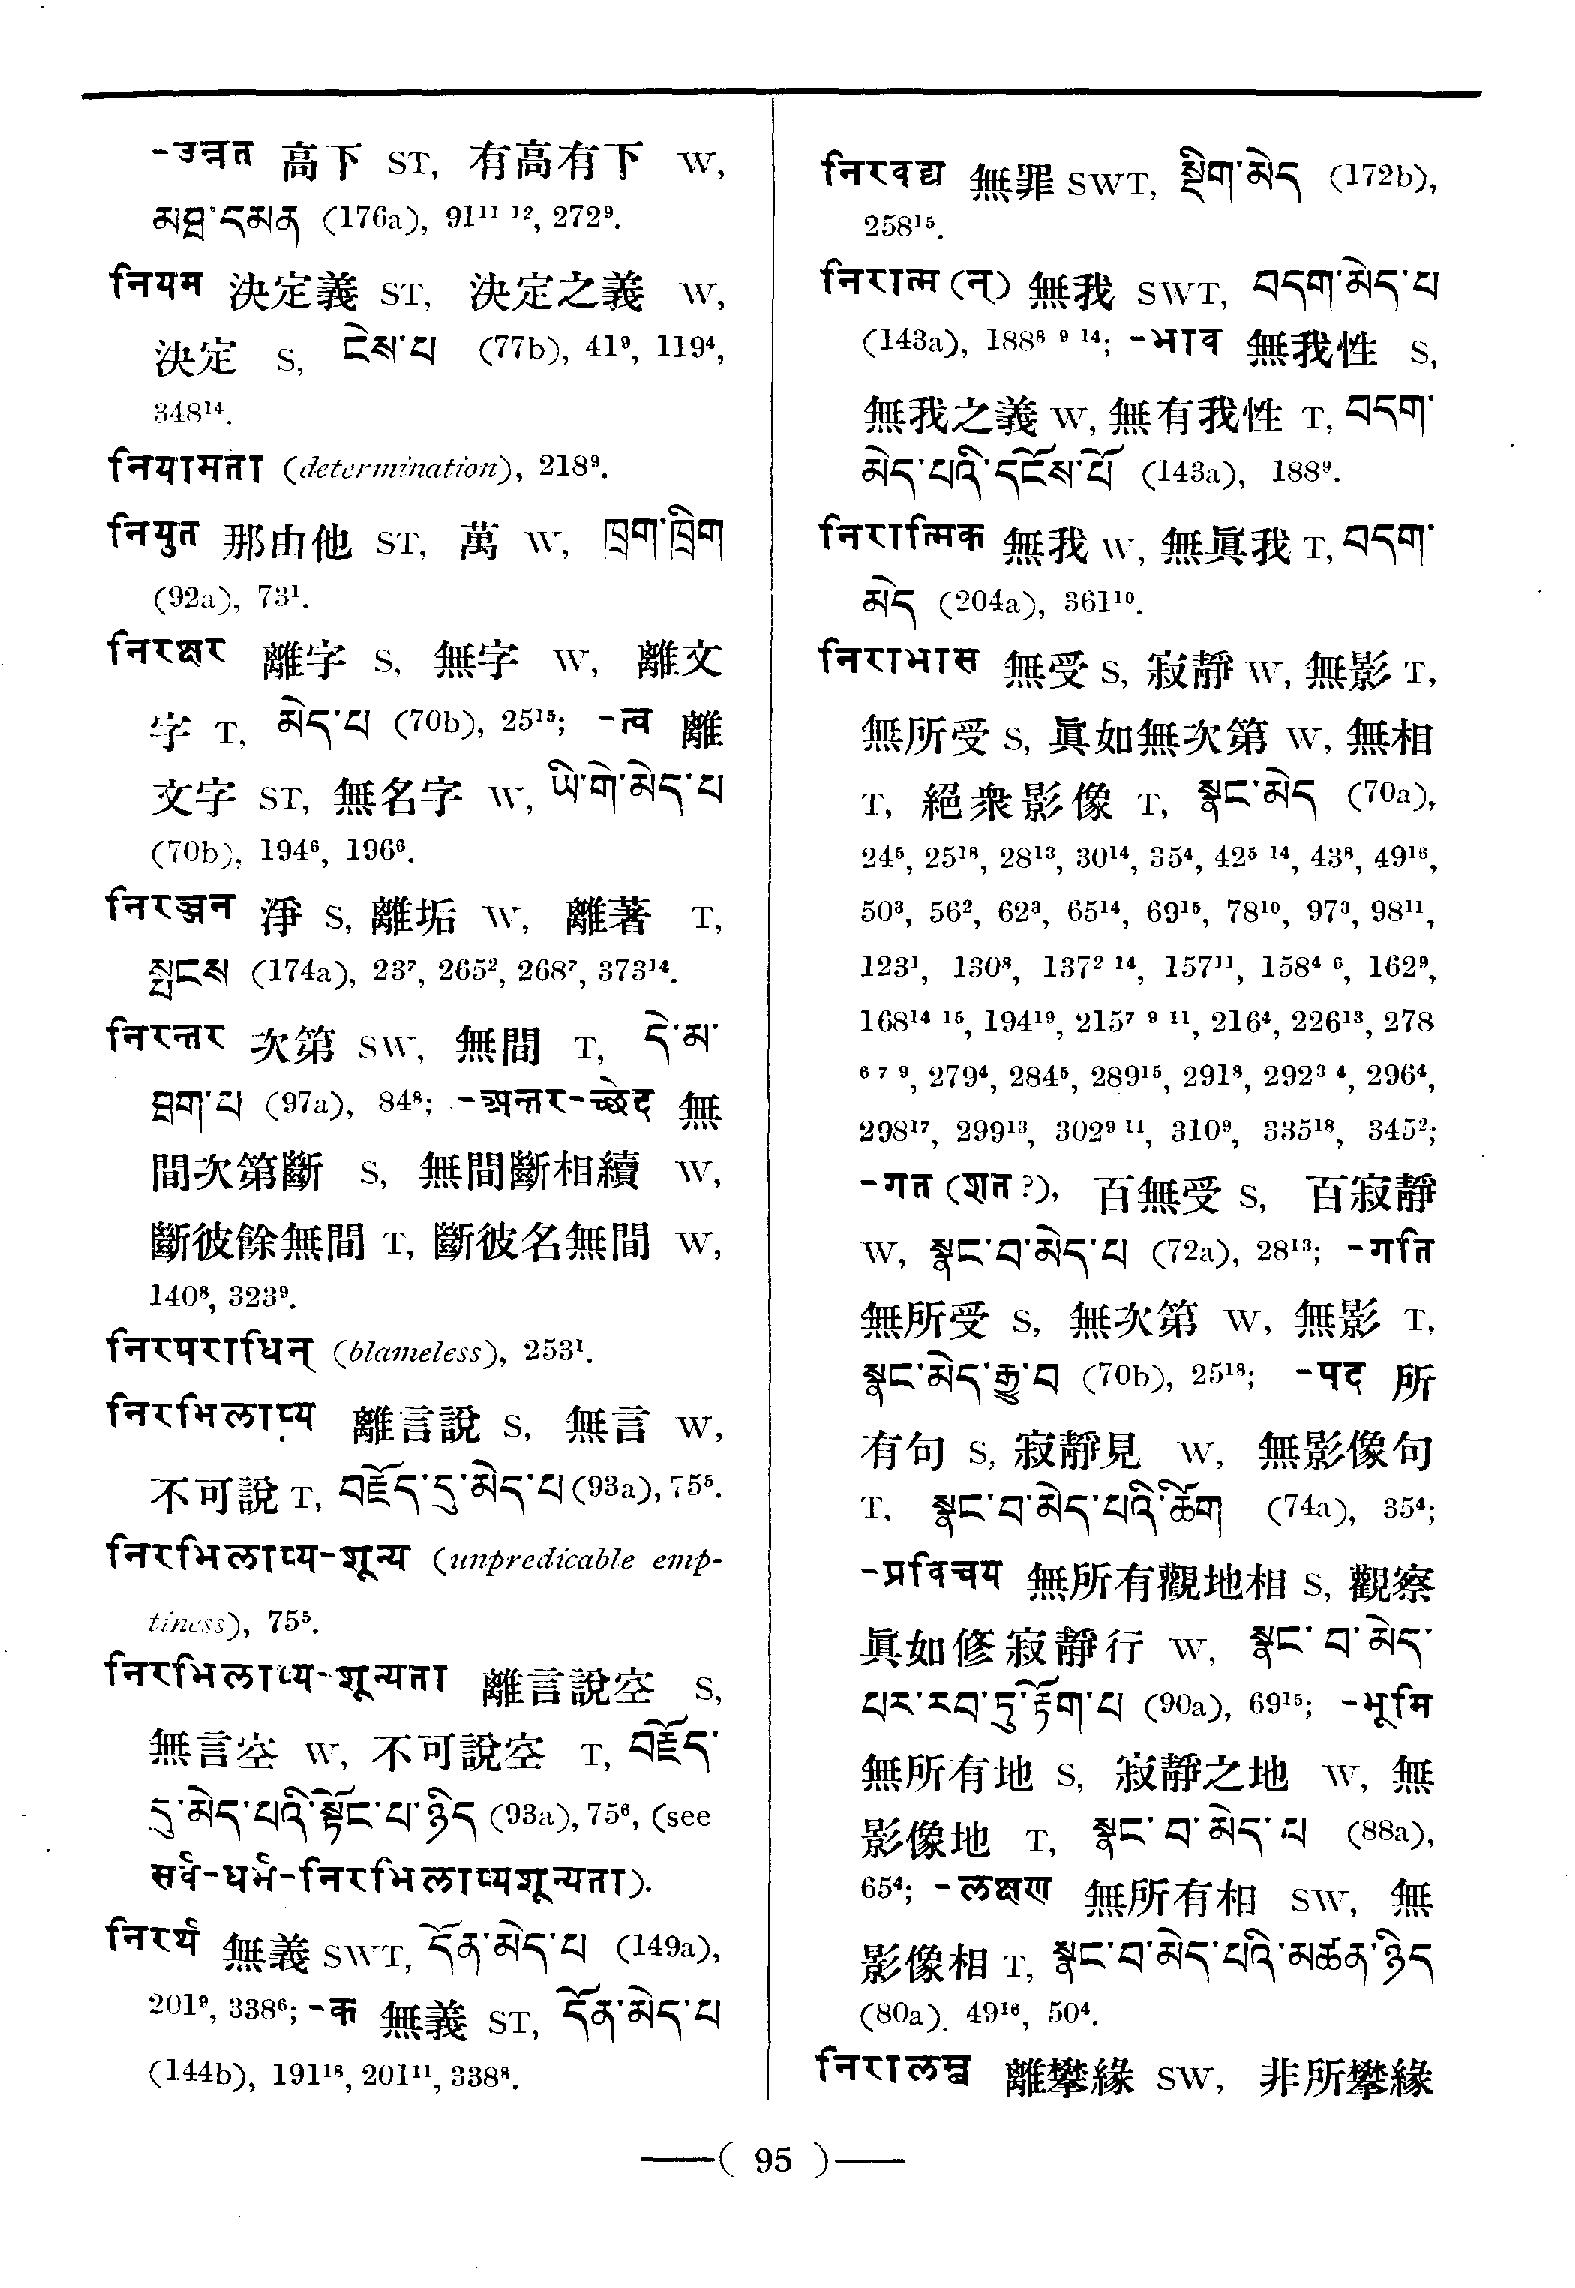 -उन्नत 高下 ST, 有高有下 W,
མཐ་དམན (176a), 91¹¹ ¹², 272⁹.
नियम 決定義 ST, 決定之義 W,
決定 S, ངེས་པ (77b), 41⁹, 119⁴,
348¹⁴.
नियामता (determination), 218⁹.
नियुत 那由他 ST, 萬 W, ཁྲག་ཁྲིག
(92a), 73¹.
निरक्षर 離字 S, 無字 W, 離文
字 T, མེད་པ (70b), 25¹⁵; -त्व 離
文字 ST, 無名字 W, ཡི་གེ་མེད་པ
(70b), 194⁶, 196⁶.
निरञ्जन 淨 S, 離垢 W, 離著 T,
སྤངས (174a), 23⁷, 265², 268⁷, 373¹⁴.
निरन्तर 次第 SW, 無間 T, དེ་མ་
ཐག་པ (97a), 84⁸; -अन्तर-च्छेद 無
間次第斷 S, 無間斷相續 W,
斷彼餘無間 T, 斷彼名無間 W,
140⁸, 323⁹.
निरपराधिन् (blameless), 253¹.
निरभिलाप्य 離言說 S, 無言 W,
不可說 T, བརྗོད་དུ་མེད་པ (93a), 75⁵.
निरभिलाप्य-शून्य (unpredicable emp-
tiness), 75⁵.
निरभिलाप्य-शून्यता 離言說空 S,
無言空 W, 不可說空 T, བརྗོད་
དུ་མེད་པའི་སྟོང་པ་ཉིད (93a), 75⁶, (see
सर्व-धर्म-निरभिलाप्यशून्यता).
निरर्थ 無義 SWT, དོན་མེད་པ (149a),
201⁹, 338⁶; -क 無義 ST, དོན་མེད་པ
(144b), 191¹⁸, 201¹¹, 338⁸.
निरवद्य 無罪 SWT, སྡིག་མེད (172b),
258¹⁵.
निरात्म (न्) 無我 SWT, བདག་མེད་པ
(143a), 188⁸ ⁹ ¹⁴; -भाव 無我性 S,
無我之義 W, 無有我性 T, བདག་
མེད་པའི་དངོས་པོ (143a), 188⁹.
निरात्मिक 無我 W, 無眞我 T, བདག་
མེད (204a), 361¹⁰.
निराभास 無受 S, 寂靜 W, 無影 T,
無所受 S, 眞如無次第 W, 無相
T, 絕衆影像 T, སྣང་མེད (70a),
24⁵, 25¹⁸, 28¹³, 30¹⁴, 35⁴, 42⁵ ¹⁴, 43⁸, 49¹⁶,
50³, 56², 62³, 65¹⁴, 69¹⁵, 78¹⁰, 97³, 98¹¹,
123¹, 130⁸, 137² ¹⁴, 157¹¹, 158⁴ ⁶, 162⁹,
168¹⁴ ¹⁵, 194¹⁹, 215⁷ ⁹ ¹¹, 216⁴, 226¹³, 278
⁶ ⁷ ⁹, 279⁴, 284⁵, 289¹⁵, 291⁸, 292³ ⁴, 296⁴,
298¹⁷, 299¹³, 302⁹ ¹¹, 310⁹, 335¹⁸, 345²;
-गत (शत ?), 百無受 S, 百寂靜
W, སྣང་བ་མེད་པ (72a), 28¹³; -गति
無所受 S, 無次第 W, 無影 T,
སྣང་མེད་རྒྱུ་བ (70b), 25¹⁸; -पद 所
有句 S, 寂靜見 W, 無影像句
T, སྣང་བ་མེད་པའི་ཚིག (74a), 35⁴;
-प्रविचय 無所有觀地相 S, 觀察
眞如修寂靜行 W, སྣང་བ་མེད་
པར་རབ་ཏུ་རྟོག་པ (90a), 69¹⁵; -भूमि
無所有地 S, 寂靜之地 W, 無
影像地 T, སྣང་བ་མེད་པ (88a),
65⁴; -लक्षण 無所有相 SW, 無
影像相 T, སྣང་བ་མེད་པའི་མཚན་ཉིད
(80a). 49¹⁶, 50⁴.
निरालम्ब 離攀緣 SW, 非所攀緣
—( 95 )—